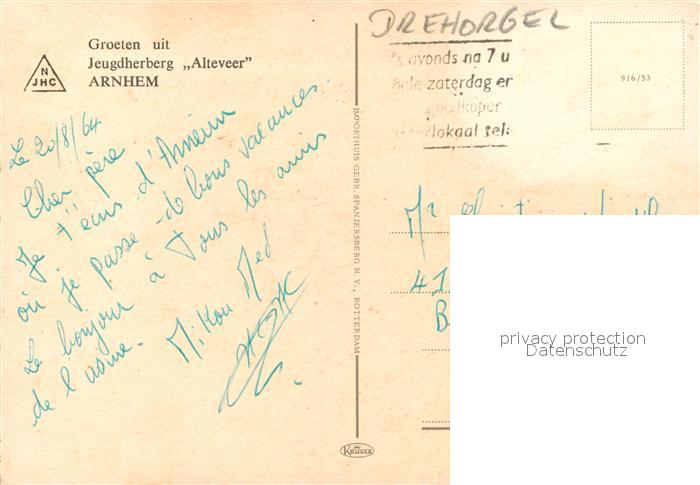 DREHORGEL
Groeten uit
Jeugdherberg „Alteveer”
ARNHEM
N
JHC
's avonds na 7 u
hele zaterdag er
goedkoper
interlokaal tel:
916/53
Le 20/8/64
Cher père
Je t'écris d'Arnheim
où je passe de bons vacances.
Le bonjour à tous les amis
de l'usine.
Mikou Med
IMPORTHUIS GEBR. SPANJERSBERG N.V., ROTTERDAM
Mr
41
B
KRUGER
privacy protection
Datenschutz